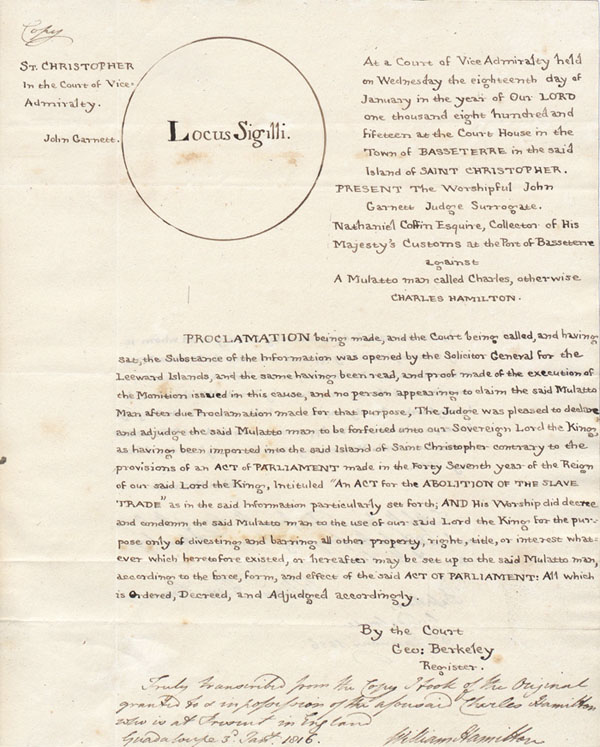 Copy
St. CHRISTOPHER
In the Court of Vice-
Admiralty.
John Garnett.
Locus Sigilli.
At a Court of Vice Admiralty held
on Wednesday the eighteenth day of
January in the year of Our LORD
one thousand eight hundred and
fifteen at the Court House in the
Town of BASSETERRE in the said
Island of SAINT CHRISTOPHER.
PRESENT The Worshipful John
Garnett Judge Surrogate.
Nathaniel Coffin Esquire, Collector of His
Majesty's Customs at the Port of Basseterre
against
A Mulatto man called Charles, otherwise
CHARLES HAMILTON.
PROCLAMATION being made, and the Court being called, and having
sat, the Substance of the Information was opened by the Solicitor General for the
Leeward Islands, and the same having been read, and proof made of the execution of
the Monition issued in this cause, and no person appearing to claim the said Mulatto
Man after due Proclamation made for that purpose, The Judge was pleased to declare
and adjudge the said Mulatto man to be forfeited unto our Sovereign Lord the King,
as having been imported into the said Island of Saint Christopher contrary to the
provisions of an ACT of PARLIAMENT made in the Forty Seventh year of the Reign
of our said Lord the King, Intituled "An ACT for the ABOLITION OF THE SLAVE
TRADE" as in the said Information particularly set forth; AND His Worship did decree
and condemn the said Mulatto man to the use of our said Lord the King for the pur-
pose only of divesting and barring all other property, right, title, or interest what-
ever which heretofore existed, or hereafter may be set up to the said Mulatto man,
according to the force, form, and effect of the said ACT OF PARLIAMENT: All which
is Ordered, Decreed, and Adjudged accordingly.
By the Court
Geo: Berkeley
Register.
Truly transcribed from the Copy I took of the Original
granted to & in possession of the aforesaid Charles Hamilton
who is at Present in England
Guadaloupe 3d. Sept. 1816. William Hamilton